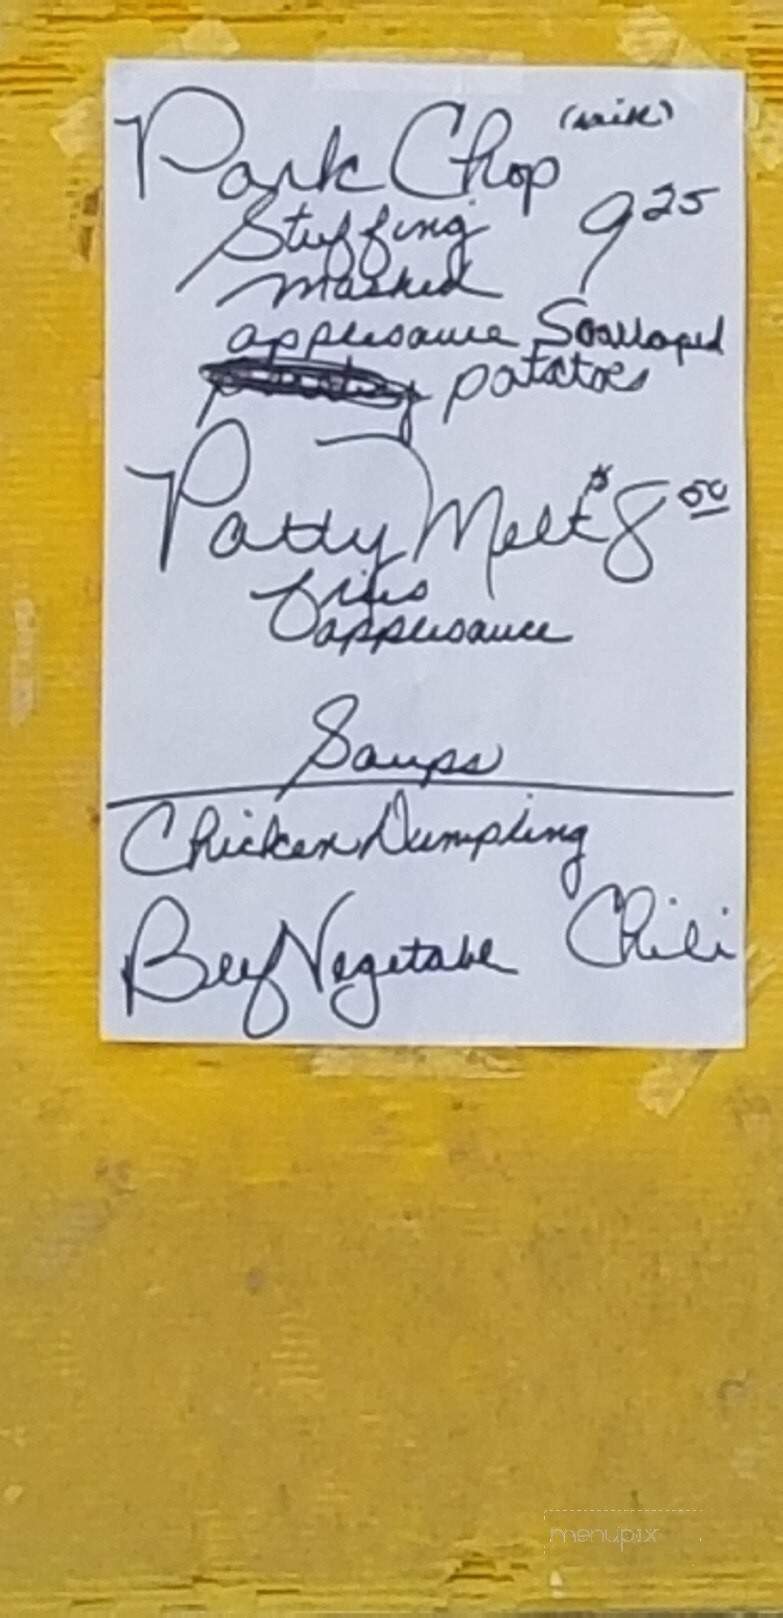 Pork Chop
Stuffing 9 25
mashed
applesauce Scalloped
potatoes
Patty Melt $8 00
fries
applesauce
Soups
Chicken Dumpling
Beef Vegetable Chili
menupix